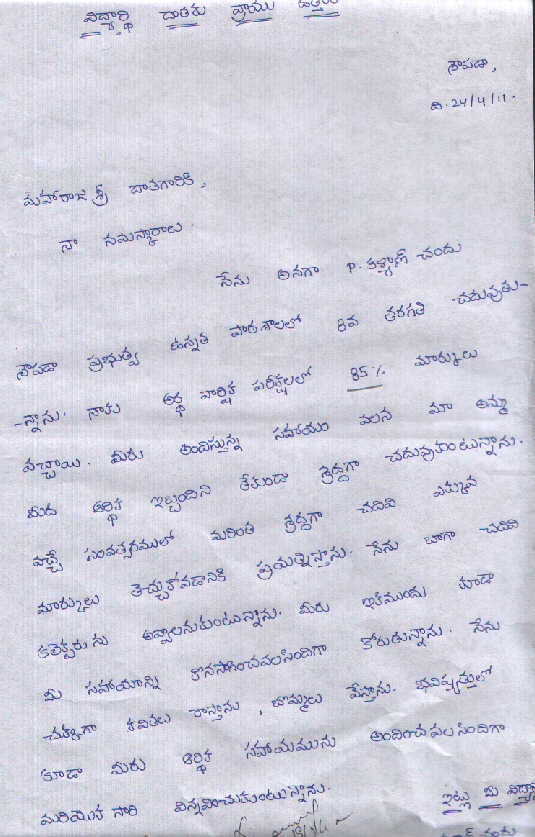 విద్యార్థి దాతకు వ్రాయు ఉత్తరం
శొపడా,
ది. 24/4/11.
మహారాజశ్రీ దాతగారికి,
నా నమస్కారాలు.
నేను అనగా P. కళ్యాణ్ చందు
శొపడా ప్రభుత్వ ఉన్నత పాఠశాలలో 8వ తరగతి చదువుతు-
-న్నాను. నాకు అర్థ వార్షిక పరీక్షలలో 85% మార్కులు
వచ్చాయి. మీరు అందిస్తున్న సహాయం వలన మా అమ్మ
మీద ఆర్థిక ఇబ్బందిని లేకుండా శ్రద్ధగా చదువుకుంటున్నాను.
వచ్చే సంవత్సరములో మరింత శ్రద్ధగా చదివి ఎక్కువ
మార్కులు తెచ్చుకోవడానికి ప్రయత్నిస్తాను. నేను బాగా చదివి
కలెక్టరును అవ్వాలనుకుంటున్నాను. మీరు ఇకముందు కూడా
మీ సహాయాన్ని కొనసాగించవలసిందిగా కోరుతున్నాను. నేను
చక్కగా కవితలు రాస్తాను, బొమ్మలు వేస్తాను. భవిష్యత్తులో
కూడా మీరు ఆర్థిక సహాయమును అందించవలసిందిగా
మరియొక సారి విన్నవించుకుంటున్నాను.
ఇట్లు మీ విద్యార్థి